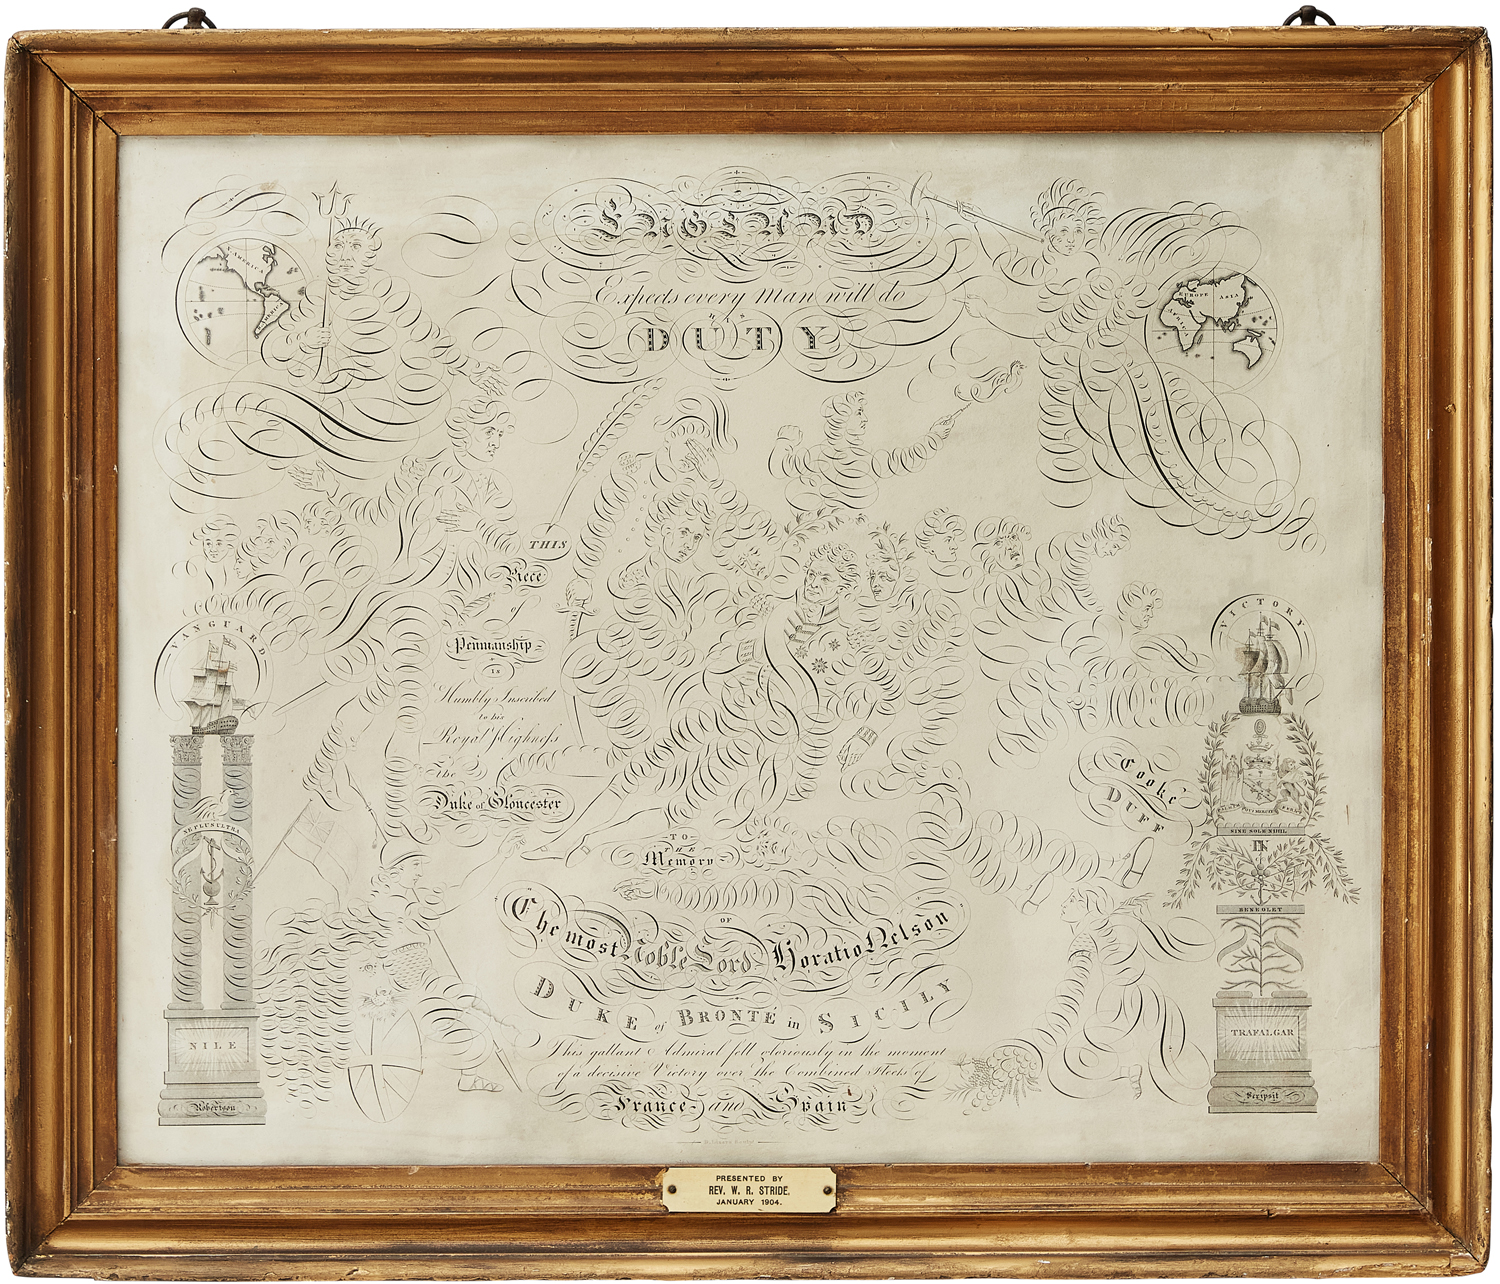 ENGLAND
Expects every Man will do
HIS
DUTY
AMERICA
AMERICA
EUROPE
ASIA
AFRICA
THIS
Piece
of
Penmanship
IS
Humbly Inscribed
to his
Royal Highness
the
Duke of Gloucester
TO
THE
Memory
OF
The most Noble Lord Horatio Nelson
DUKE of BRONTE in SICILY
This gallant Admiral fell gloriously in the moment
of a decisive Victory over the Combined Fleets of
France and Spain
VANGUARD
NE PLUS ULTRA
NILE
Robertson
VICTORY
Cooke
DUFF
SINE SOLE NIHIL
IN
TRAFALGAR
Scripsit
PRESENTED BY
REV. W. R. STRIDE.
JANUARY 1904.